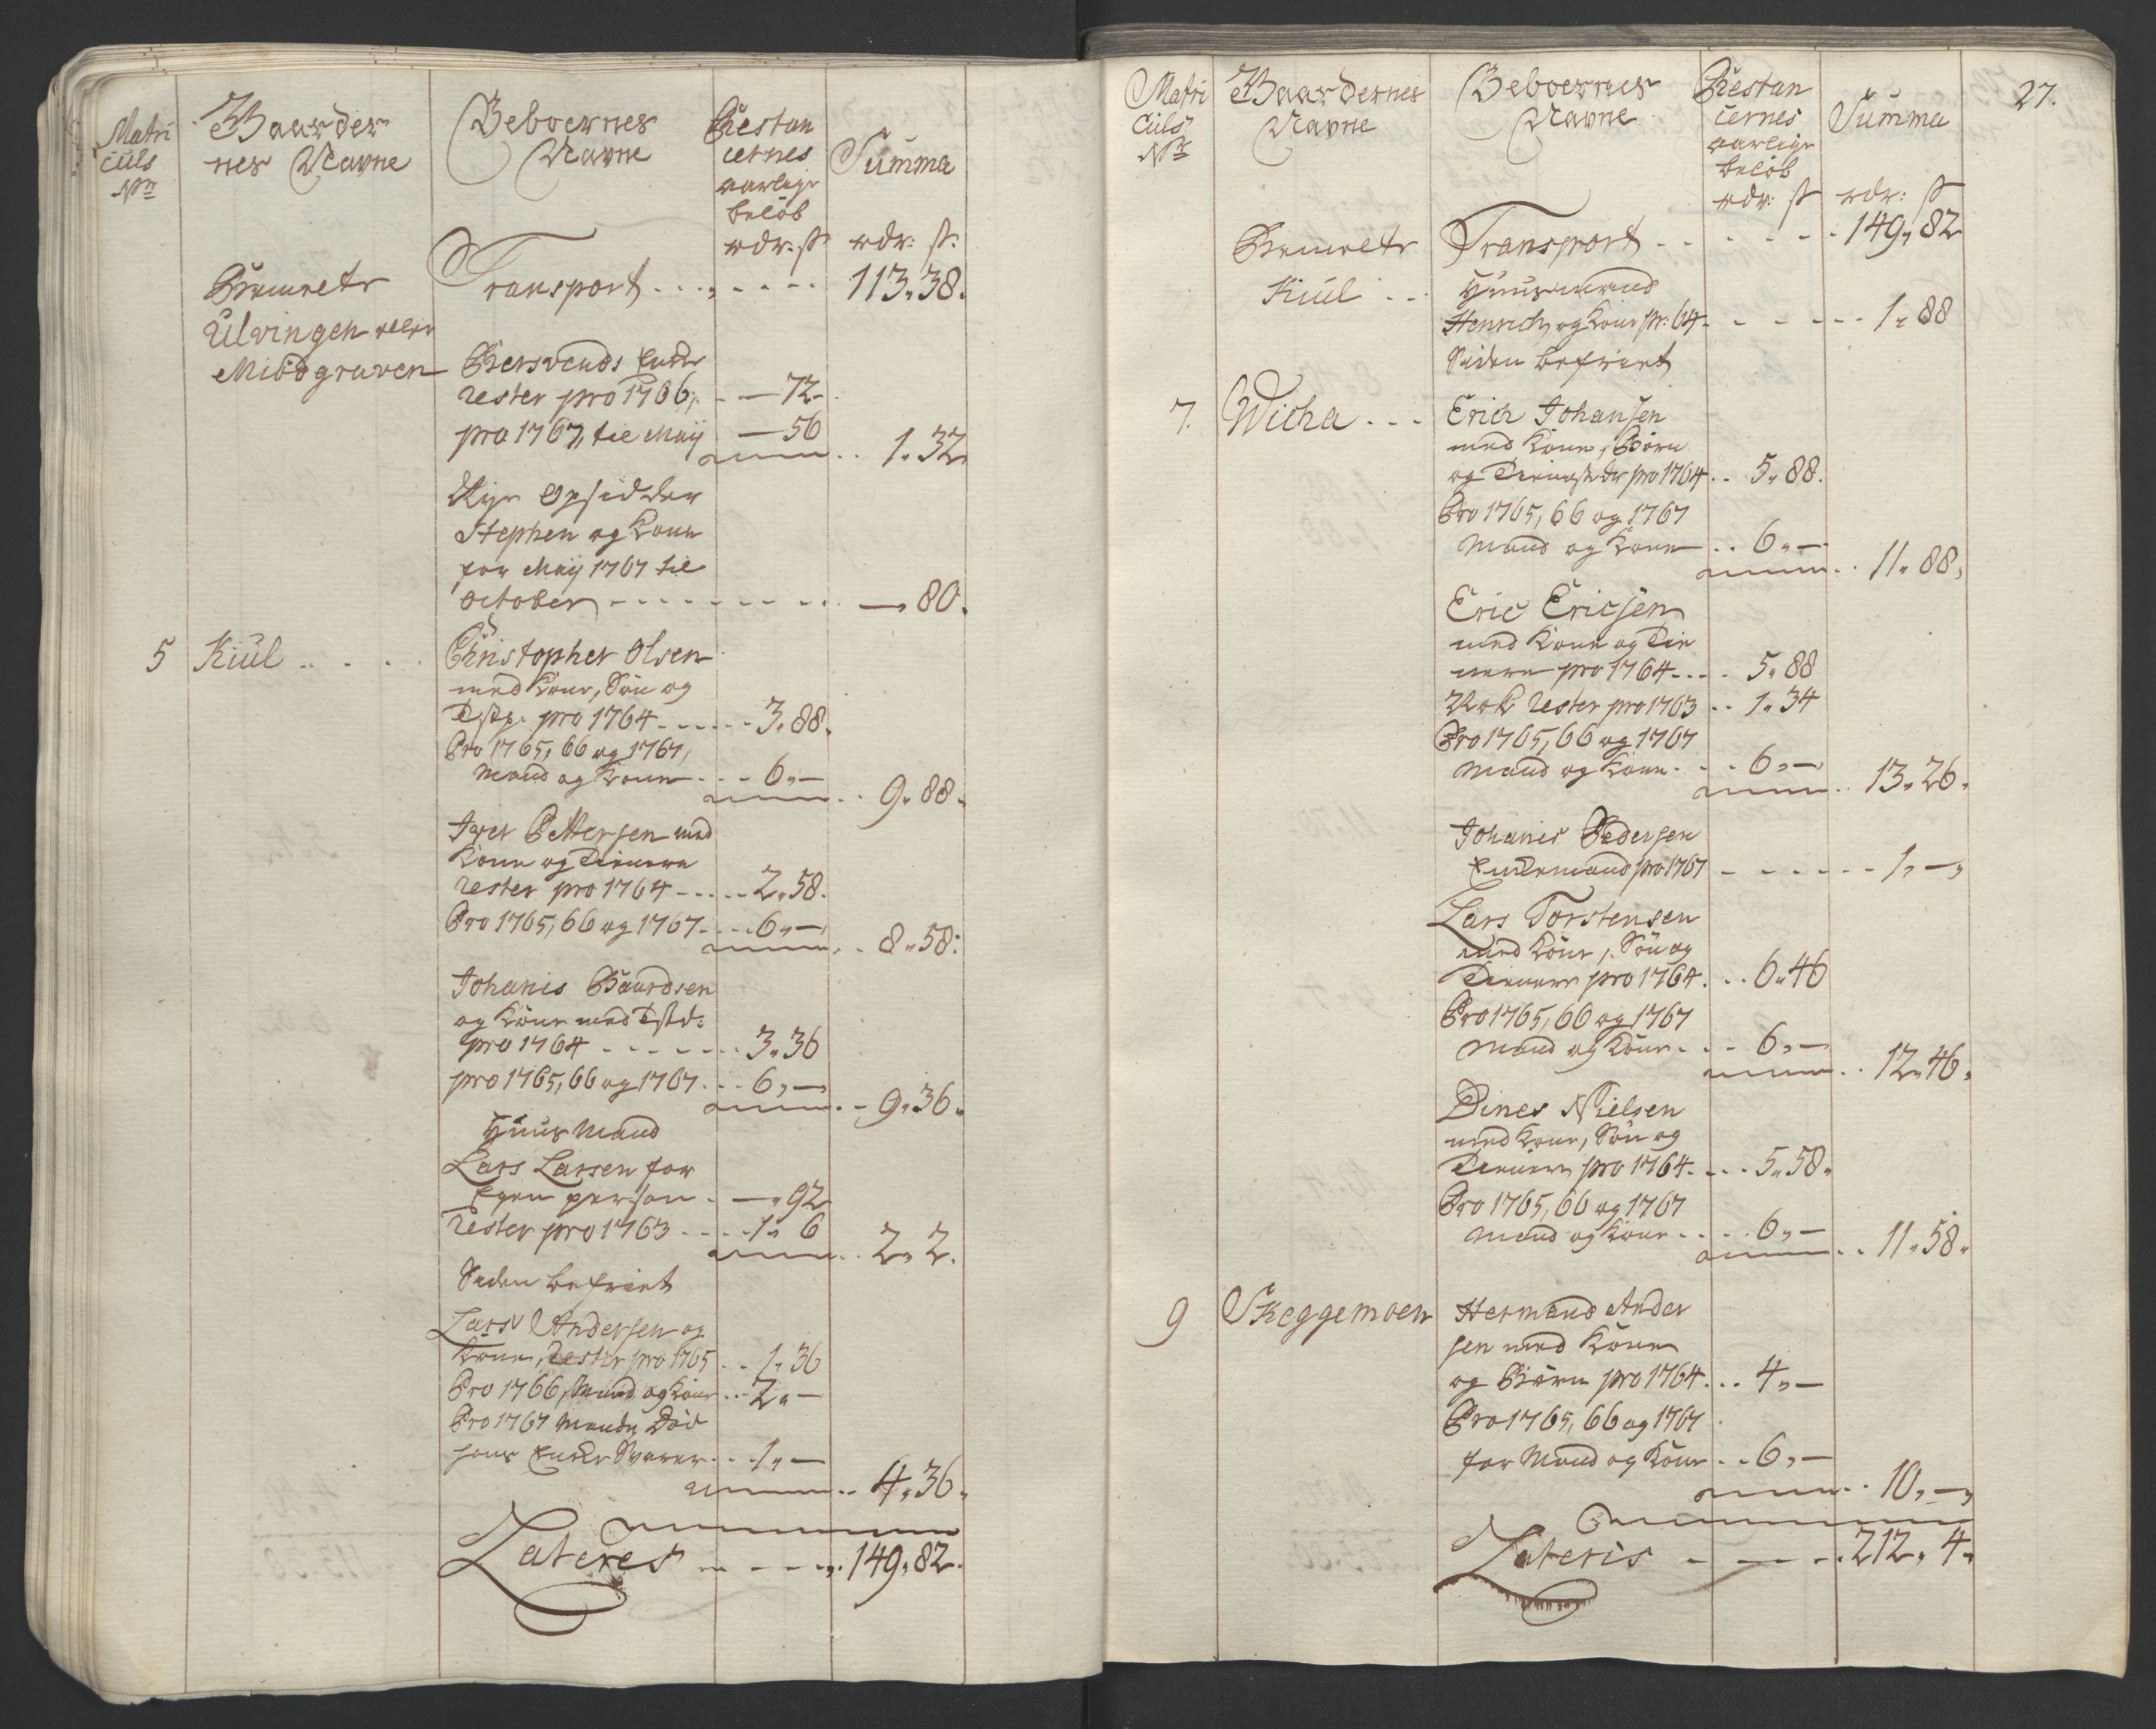 Matri
culs
Nr
Gaarder
nes Navne
Beboernes
Navne
Restan
cernes
aarlige
beløb
rdr: ß
Summa
rdr: ß:
Transport - - - - - 113„38.
Ulvingen eller
Mibdgraven
Bersvends Enke
rester pro 1766, - - — 72„
pro 1767, til Maij — 56
1„32
Nye Opsidder
Stephen og Kone
for Maij 1767 til
October - - - - - - - - —„80.
5 Kiul . . . .
Christopher Olsen
med Kone, Søn og
pro 1764 - - - - - 3„88.
Pro 1765, 66 og 1767,
Mand og Kone - - - 6„—
9„88„
Iver Pettersen med
Kone og Tienere
rester pro 1764 - - - - - 2„58.
Pro 1765, 66 og 1767. - - - 6„—
8„58:
Johanis Baardsen
og Kone med Tstd:
pro 1764 - - - - - - 3„36
pro 1765, 66 og 1767 - - - 6„—
9„36„
Huus Mand
Lars Larsen for
Egen person - —„92
rester pro 1763 - - - - 1„6
2„2.
Siden befriet
Lars Andersen og
Kone, rester pro 1765 - - 1„36
Pro 1766, Mand og Kone - - 2„—
Pro 1767 Manden Død
hans Enke Svarer - - - 1„—
4„36„
Lateres - - - - - 149„82.
27.
Matri
culs
Nr
Gaardernes
Navne
Beboernes
Navne
Restan
cernes
aarlige
beløb
rdr: ß
Summa
rdr: ß
Transport - - - - - - 149„82
Kiul - -
Huusmand
Henrich og Kone pr: 64 - - - - - - 1„88
Siden befriet
7. Wicha - - -
Erich Johansen
med Kone, Børn
og Tieneste pro 1764 - - 5„88.
Pro 1765, 66 og 1767
Mand og Kone - - 6„—
11„88„
Eric Ericsen
med Kone og Tie
nere pro 1764 - - - - 5„88
Nok rester pro 1763 - - 1„34
Pro 1765, 66 og 1767
Mand og Kone - - - 6„—
13„26„
Johanis Pedersen
Enkemand pro 1767 - - - - - - - 1„—„
Lars Torstensen
med Kone, Søn og
Tienere pro 1764. - - 6„46
Pro 1765, 66 og 1767
Mand og Kone - - - 6„—
12„46„
Dines Nielsen
med Kone, Søn og
Tienere pro 1764. - - - 5„58„
Pro 1765, 66 og 1767
Mand og Kone - - - - 6„—
11„58„
9 Skeggemoen
Hermand Ander
sen med Kone
og Børn pro 1764 - - - 4„—
Pro 1765, 66 og 1767
for Mand og Kone - - 6„—
10„—„
Lateris - - - - 212„4„